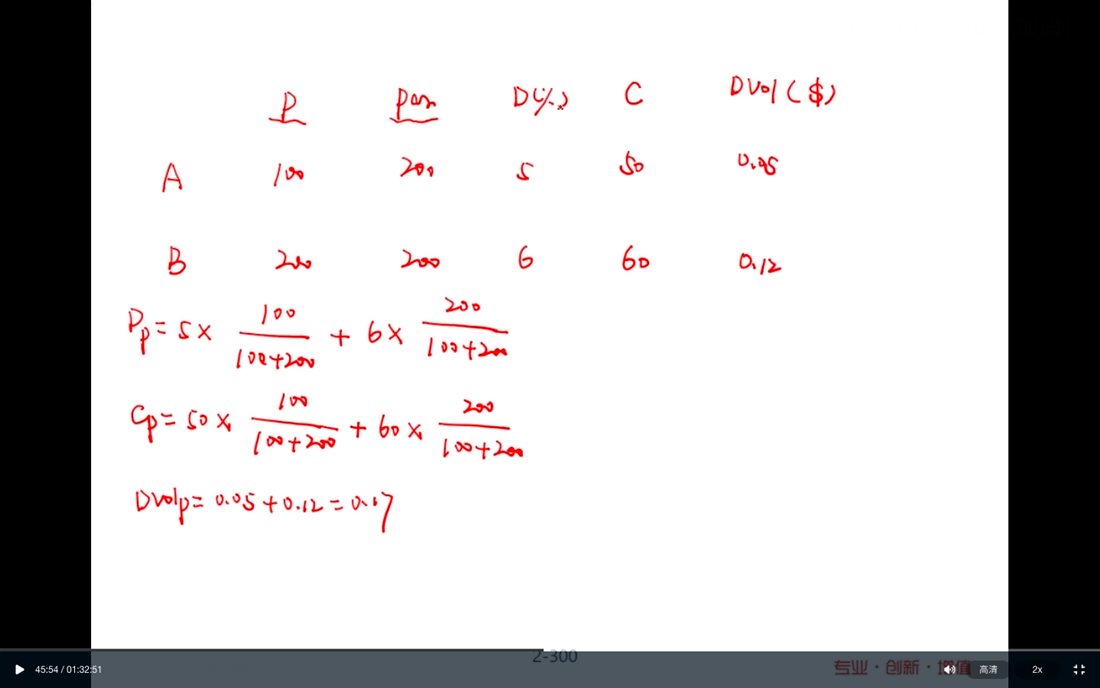 P par D(%) C DVol($)
A 100 200 5 50 0.05
B 200 200 6 60 0.12
Dp = 5 × 100/(100+200) + 6 × 200/(100+200)
Cp = 50 × 100/(100+200) + 60 × 200/(100+200)
DVolp = 0.05 + 0.12 = 0.17
2-300
专业·创新·增值
45:54 / 01:32:51
高清
2x